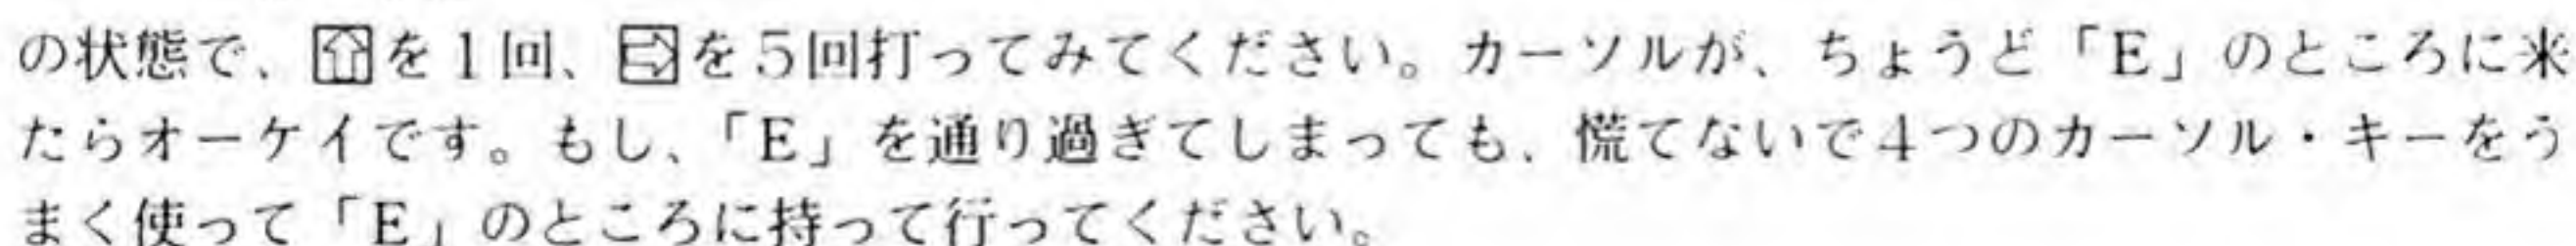 の状態で、⇧を1回、⇨を5回打ってみてください。カーソルが、ちょうど「E」のところに来
たらオーケイです。もし、「E」を通り過ぎてしまっても、慌てないで4つのカーソル・キーをう
まく使って「E」のところに持って行ってください。